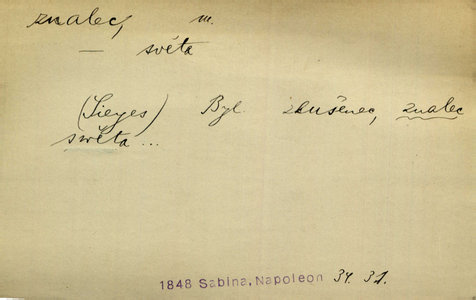 znalec, m.
— světa
(Sieyes) Byl zkušenec, znalec
světa...
1848 Sabina, Napoleon 34. 31.